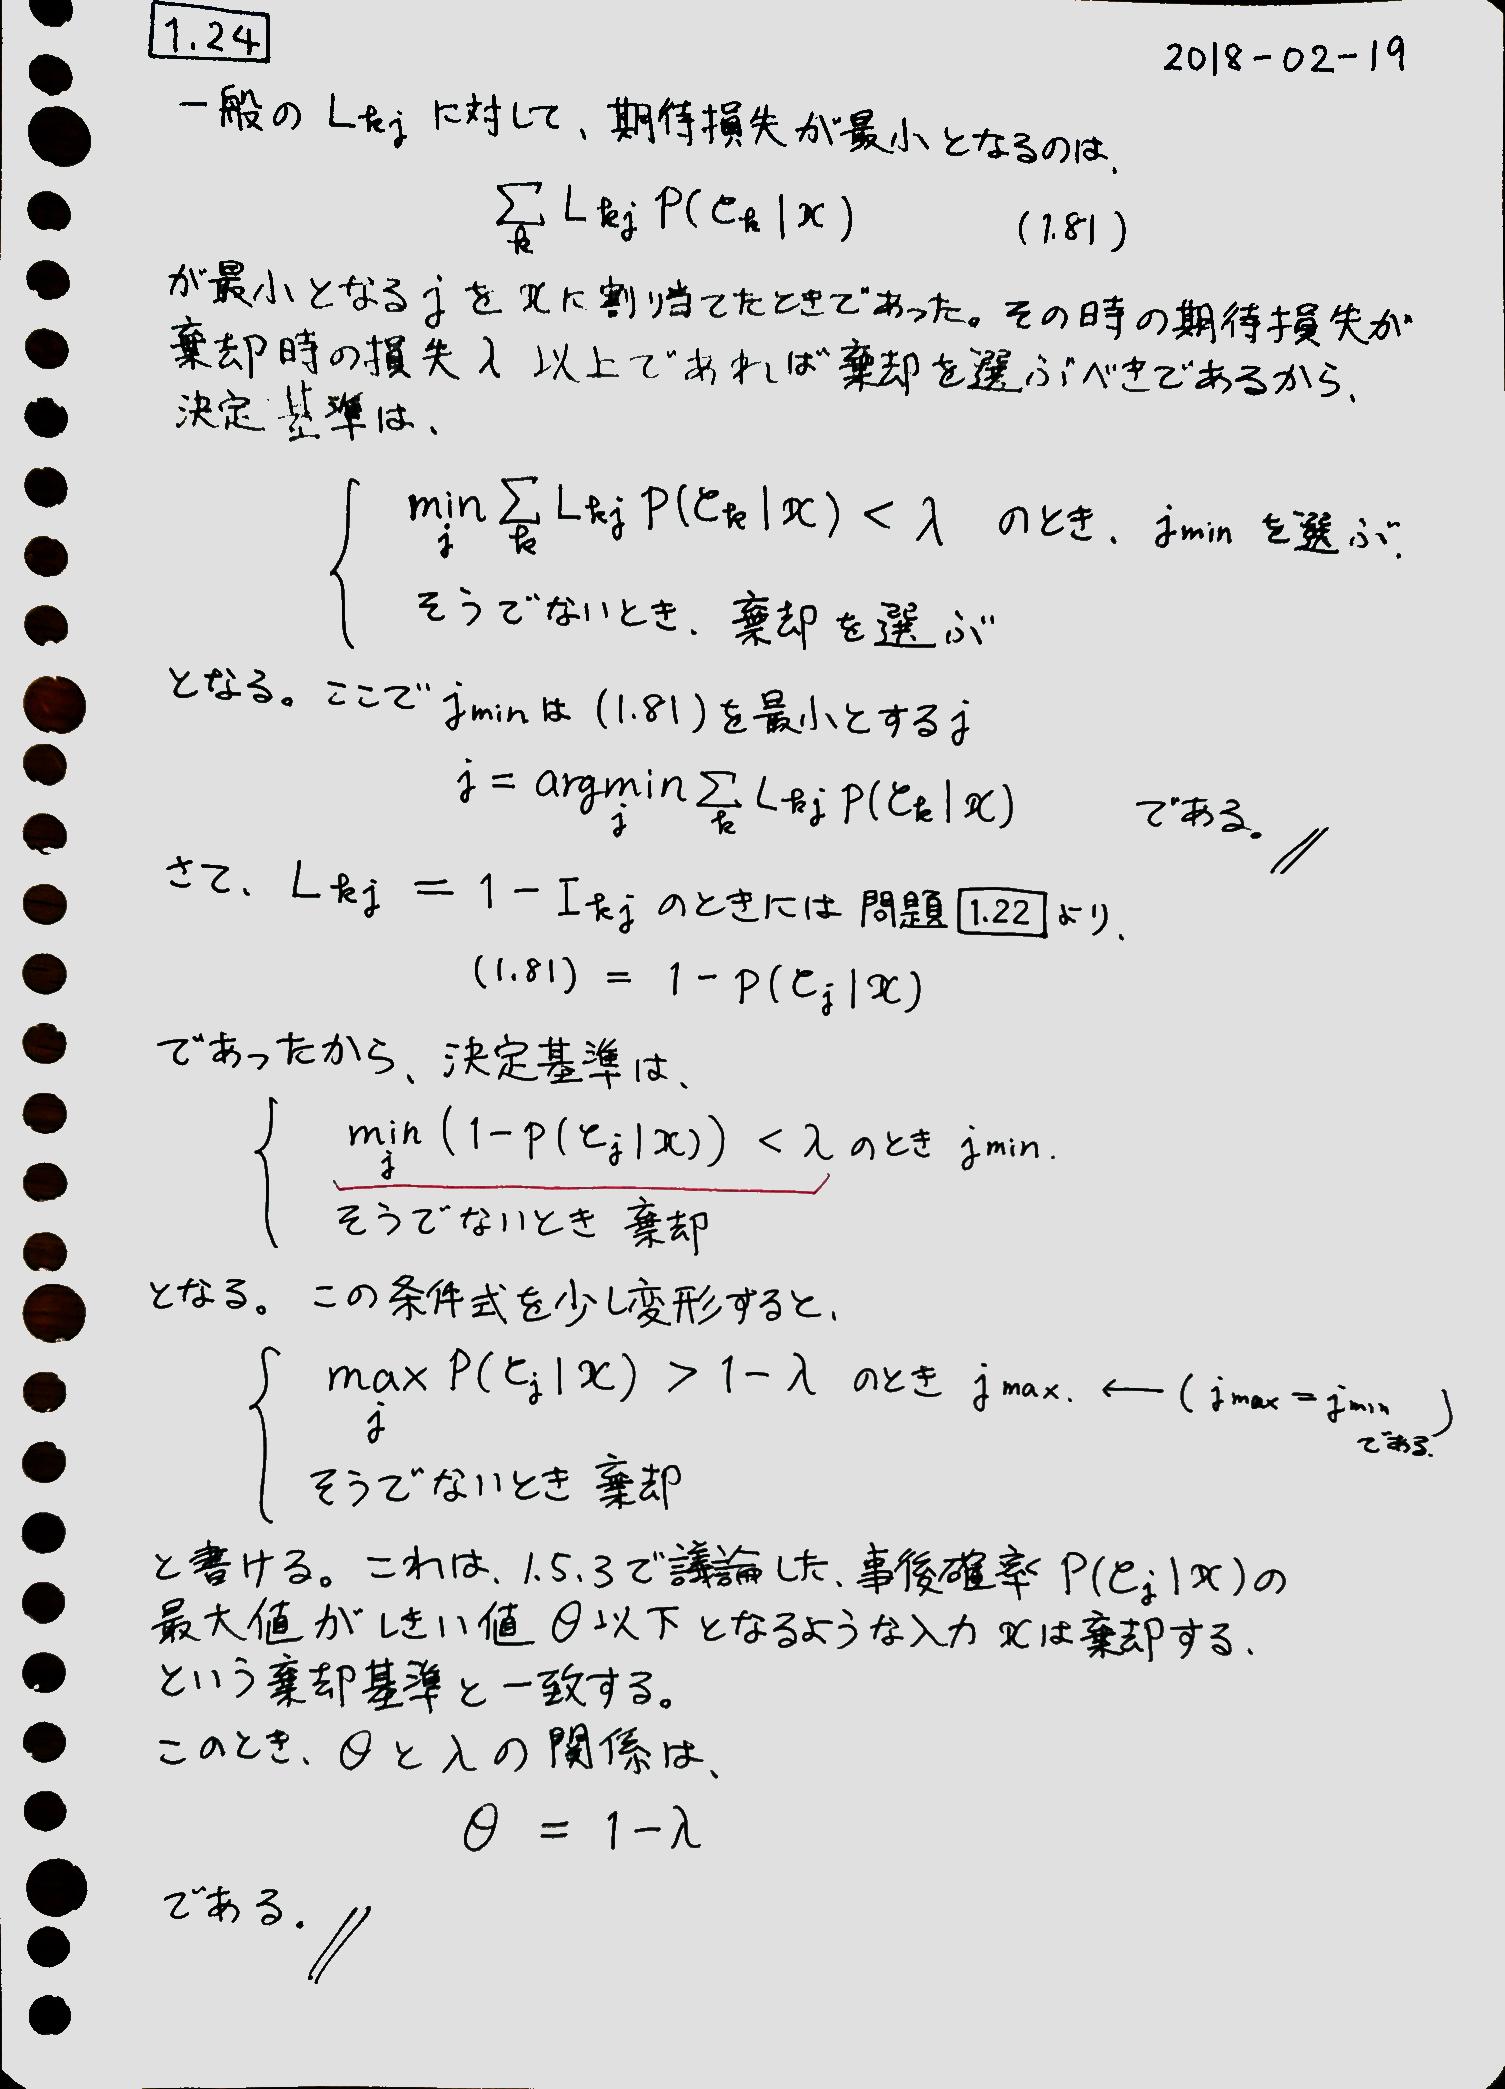 1.24
2018-02-19
一般の Lkj に対して、期待損失が最小となるのは、
∑k Lkj P(Ck|x) (1.81)
が最小となる j を xに割り当てたときであった。その時の期待損失が
棄却時の損失 λ 以上であれば棄却を選ぶべきであるから、
決定基準は、
{ min j ∑k Lkj P(Ck|x) < λ のとき、jmin を選ぶ.
そうでないとき、棄却を選ぶ
となる。ここで jminは (1.81)を最小とする j
j = argmin j ∑k Lkj P(Ck|x) である。//
さて、Lkj = 1 - Ikj のときには 問題 1.22 より、
(1.81) = 1 - P(Cj|x)
であったから、決定基準は、
{ min j (1-P(Cj|x)) < λ のとき jmin.
そうでないとき 棄却
となる。この条件式を少し変形すると、
{ max j P(Cj|x) > 1-λ のとき jmax. ← (jmax = jmin
である.)
そうでないとき 棄却
と書ける。これは、1.5.3で議論した、事後確率 P(Cj|x)の
最大値がしきい値 θ以下となるような入力 xは棄却する、
という棄却基準と一致する。
このとき、θとλの関係は、
θ = 1-λ
である. //